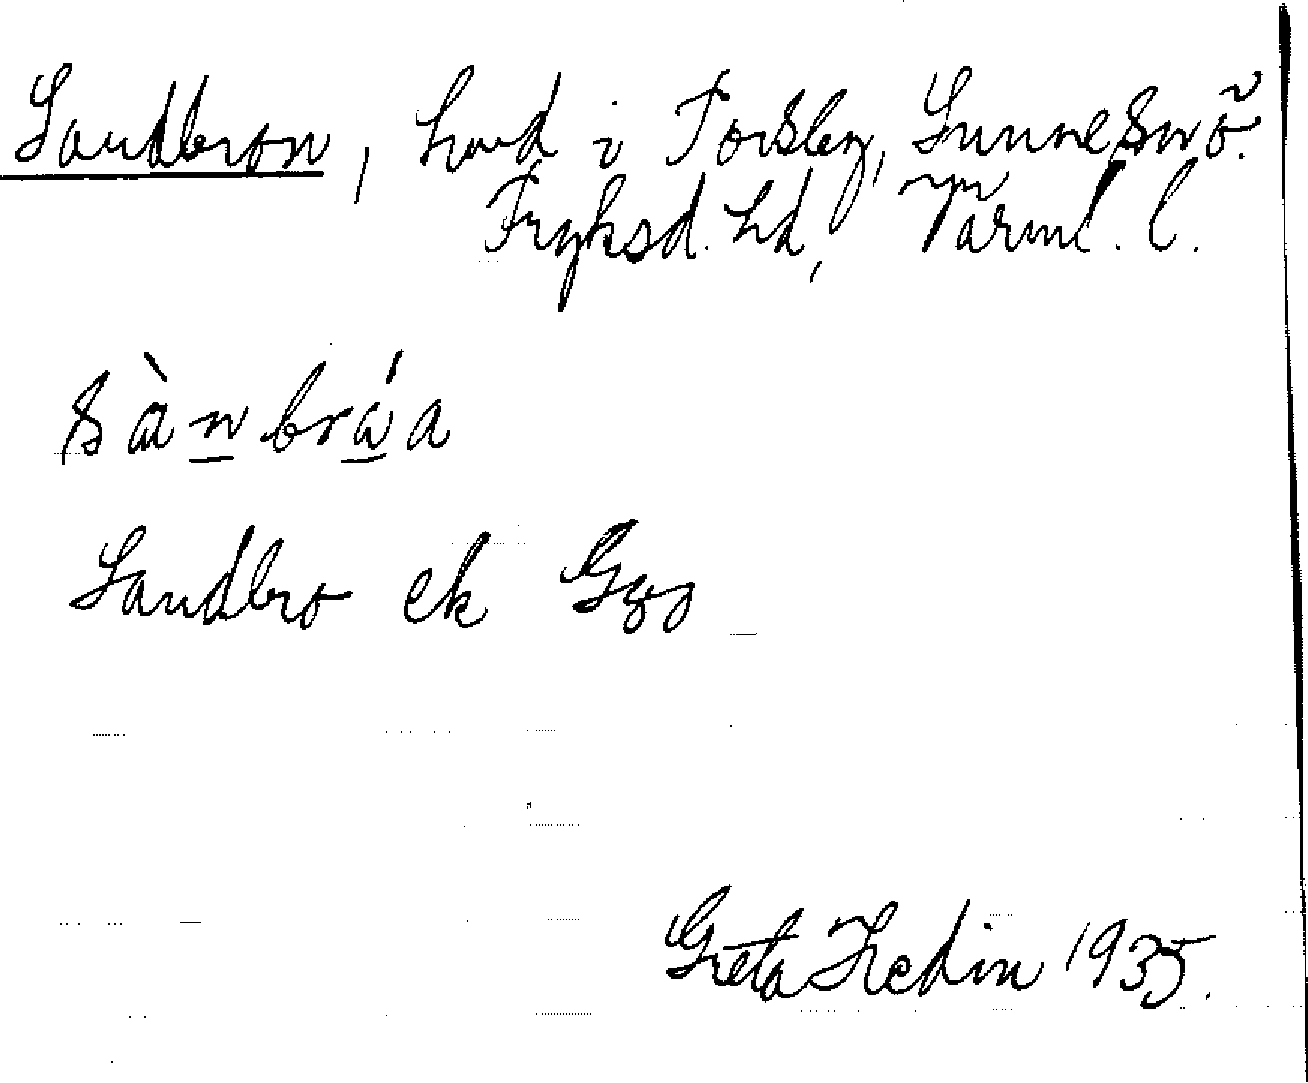 Sandbron, hmd i Torsby, Sunne sn o.
Fryksd. hd, Värml. l.
sànbróa
Sandbro ek G
Greta Hedin 1935.